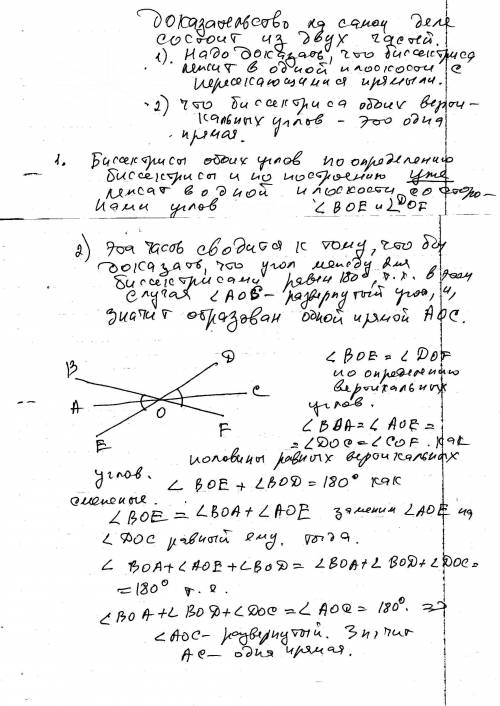 Доказательство на самом деле
состоит из двух частей.
1). Надо доказать, что биссектриса
лежит в одной плоскости с
пересекающимися прямыми.
2) что биссектриса обоих верти-
кальных углов - это одна
прямая.
1. Биссектрисы обоих углов по определению
биссектрисы и по построению уже
лежат в одной плоскости со сторо-
нами углов ∠BOE и ∠DOF
2) Эта часть сводится к тому, что бы
доказать, что угол между
биссектрисами равен 180°, т.к. в этом
случая ∠AOC - развернутый угол, и,
значит образован одной прямой AOC.
B
D
A
O
C
E
F
∠BOE = ∠DOF
по определению
вертикальных
углов.
∠BOA = ∠AOE =
= ∠DOC = ∠COF. как
половины равных вертикальных
углов.
∠BOE + ∠BOD = 180° как
смежные.
∠BOE = ∠BOA + ∠AOE заменим ∠AOE на
∠DOC равный ему, тогда.
∠BOA + ∠AOE + ∠BOD = ∠BOA + ∠BOD + ∠DOC =
= 180° т.е.
∠BOA + ∠BOD + ∠DOC = ∠AOC = 180°. ⇒
∠AOC - развернутый. Значит
AC - одна прямая.